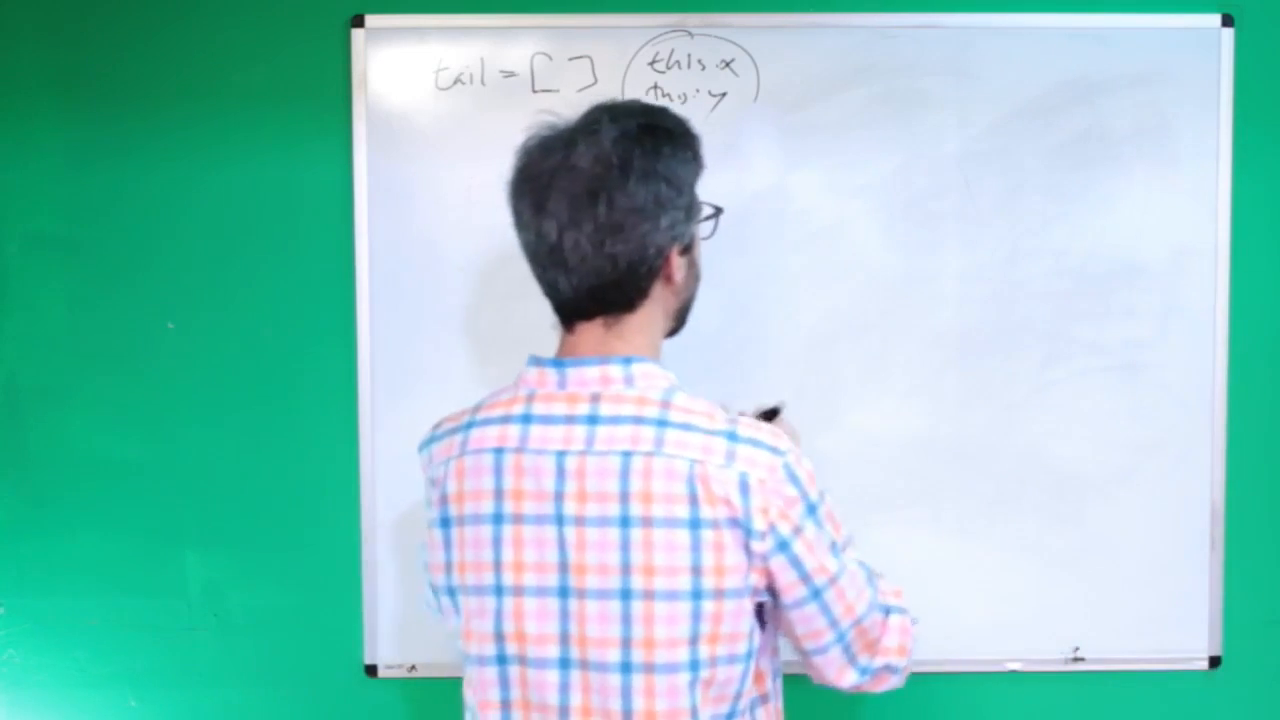 tail = [ ]
this.x
this.y